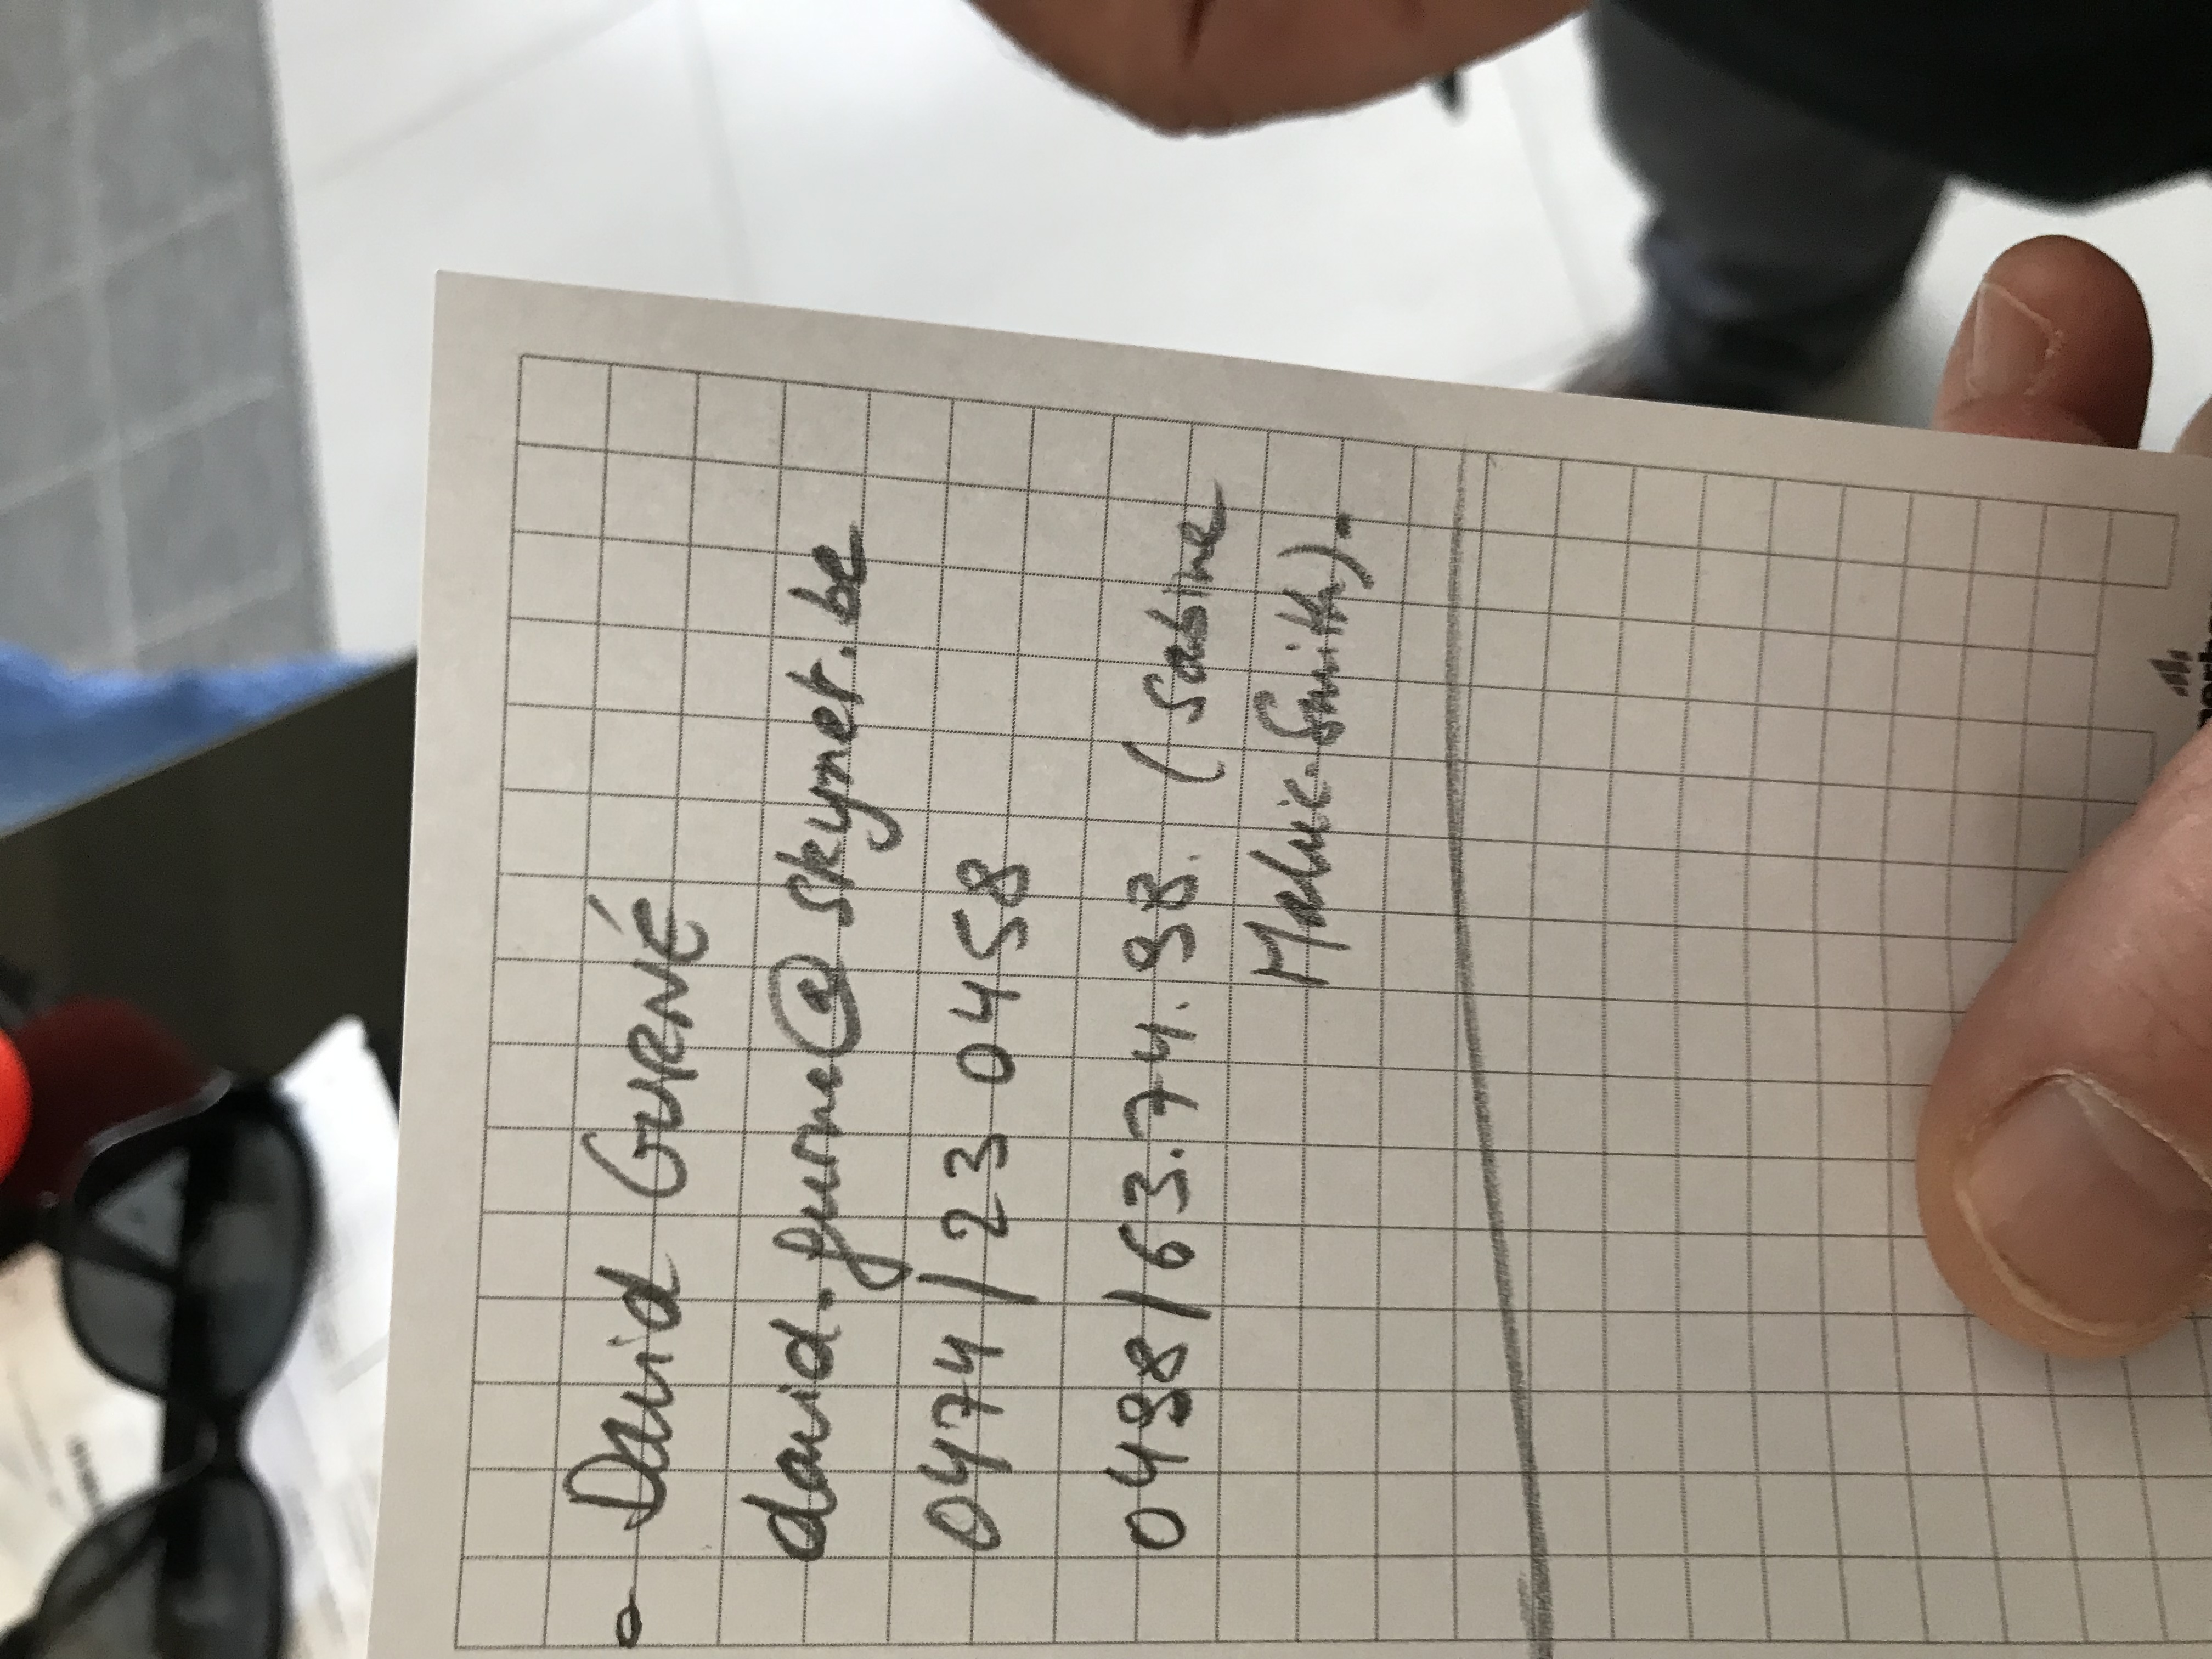 David GURNÉ
david.gurne@skynet.be
0474/23 04 58
0498/63.74.98. (Sabine
Malvic-Smith).